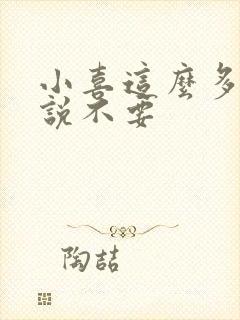 小喜這麼多
說不要
陶喆